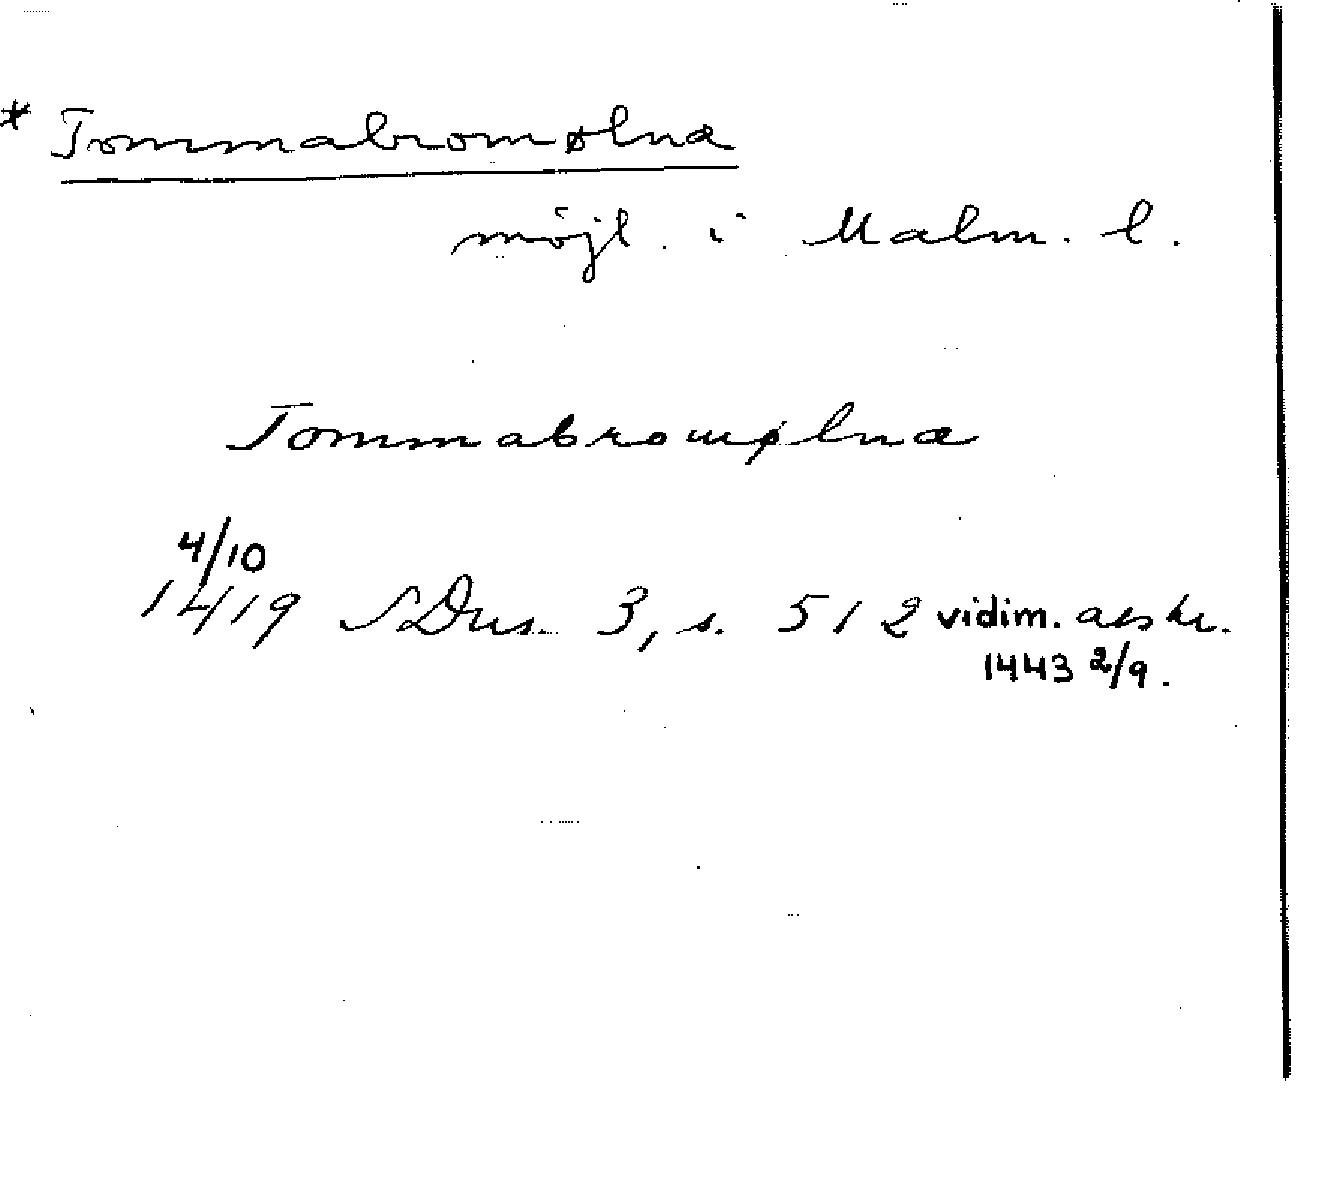 * Tommabromølnæ
möjl. i Malm. l.
Tommabromølnæ
4/10
1419 SDns. 3, s. 512 vidim. avskr.
1443 2/9.